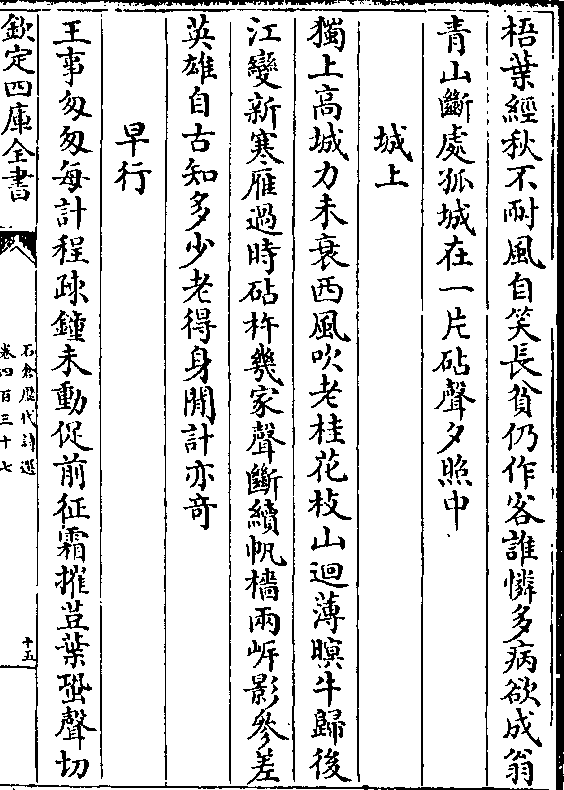 梧葉經秋不耐風自笑長貧仍作客誰憐多病欲成翁
青山斷處孤城在一片砧聲夕照中
城上
獨上高城力未衰西風吹老桂花枝山迴薄暝牛歸後
江變新寒雁過時砧杵幾家聲斷續帆檣兩岸影參差
英雄自古知多少老得身閒計亦奇
早行
王事匆匆每計程疎鐘未動促前征霜摧荳葉蛩聲切
欽定四庫全書
石倉歷代詩選
卷四百三十七
十五